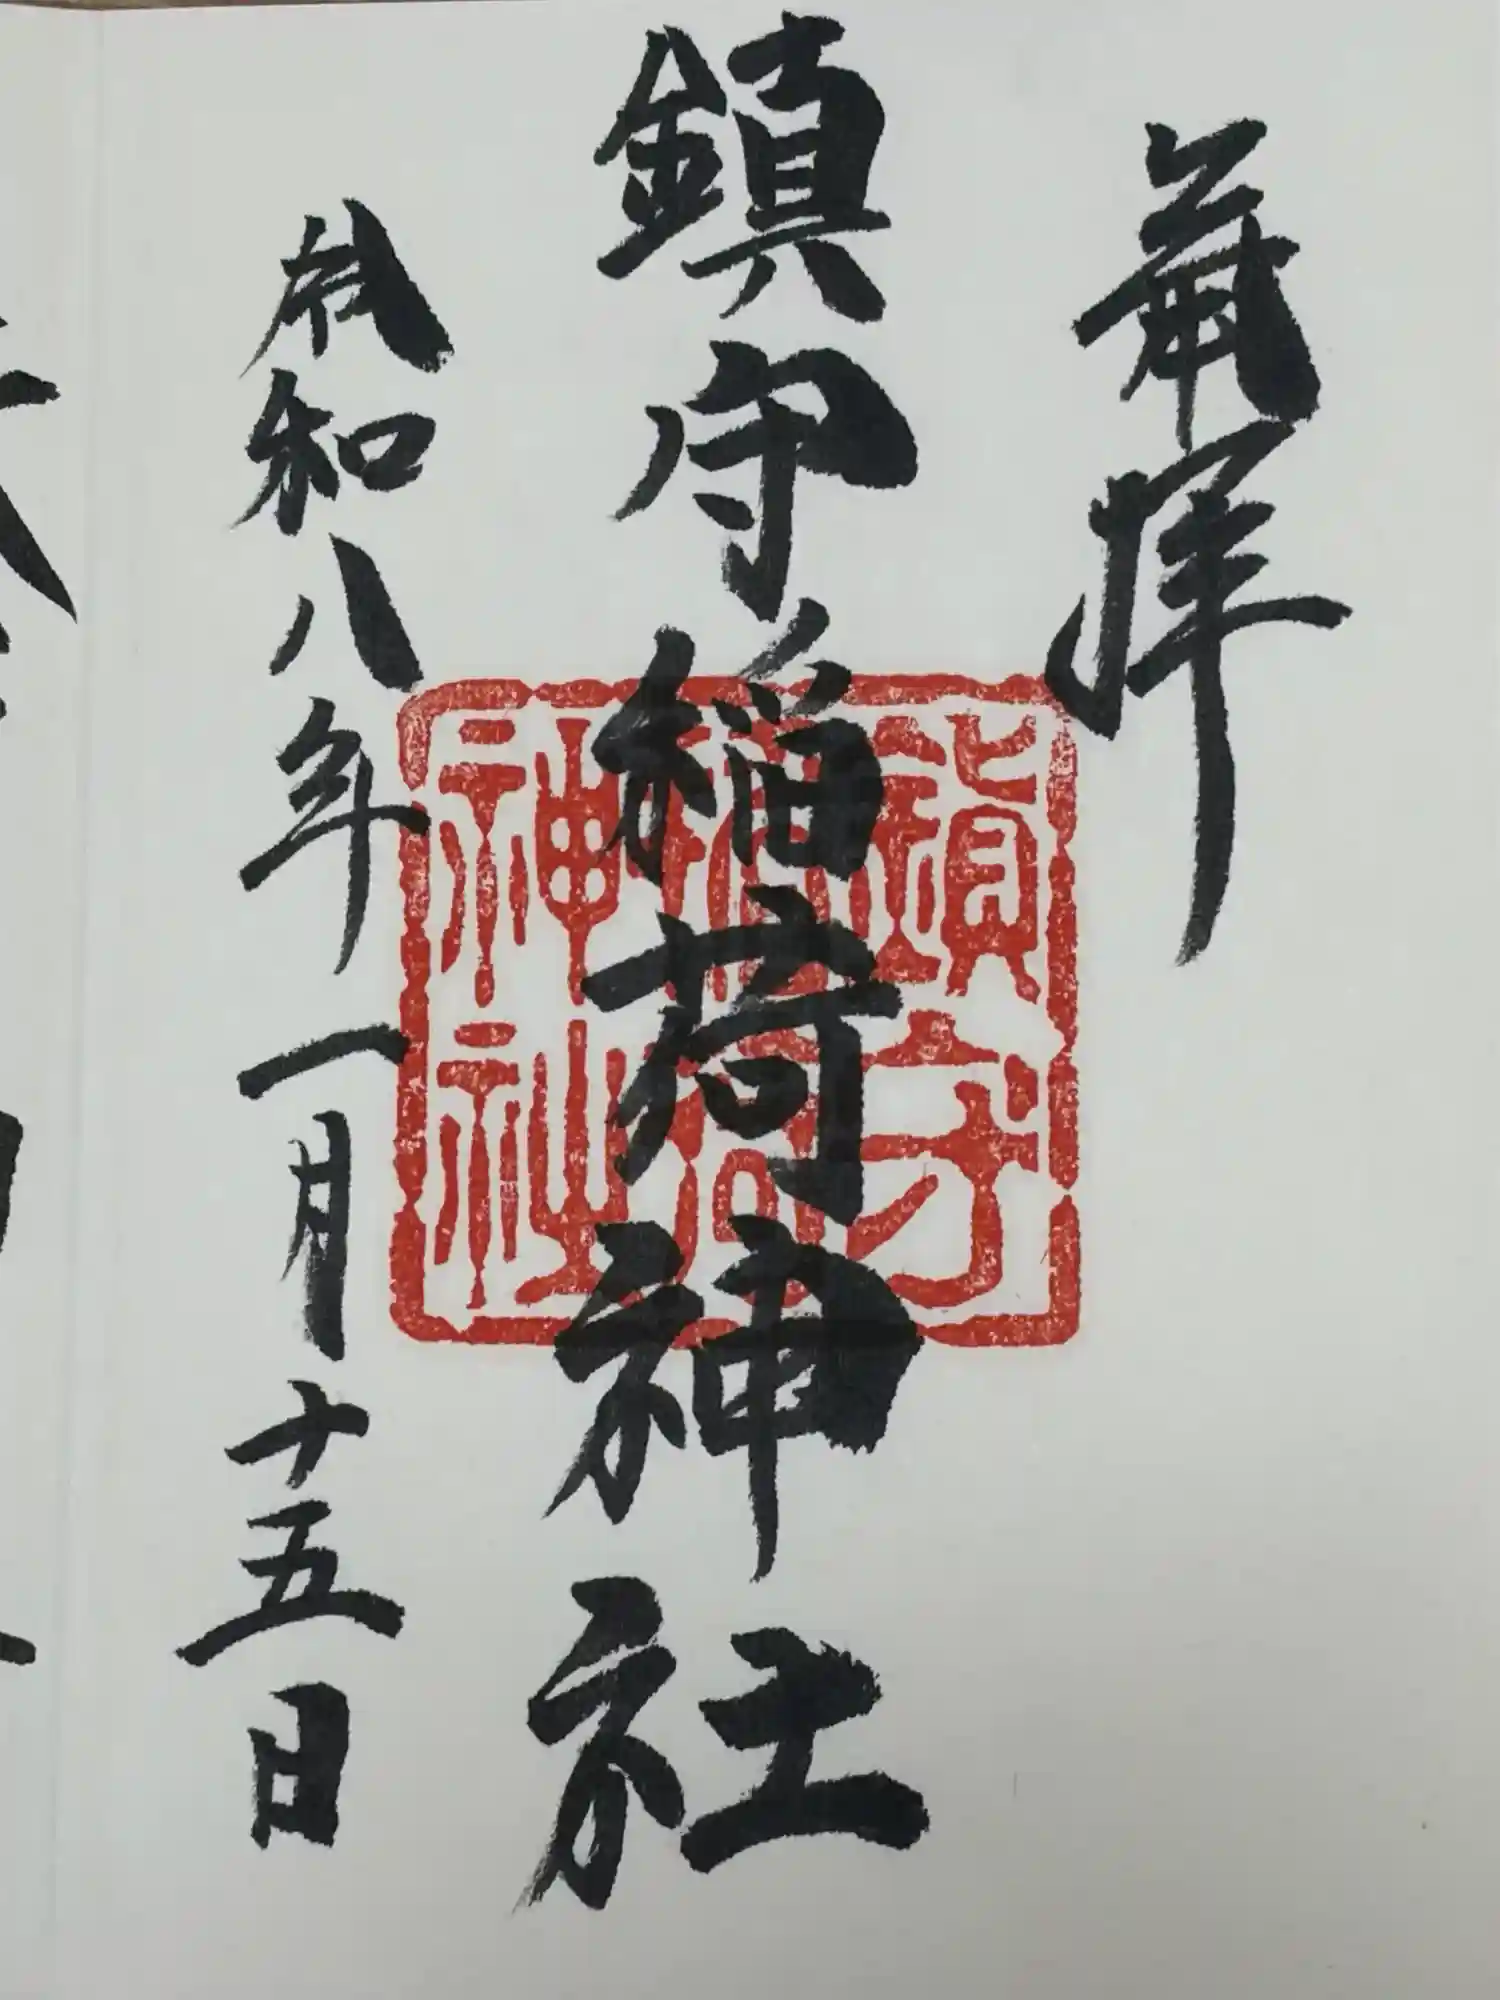 奉拝
鎮守稲荷神社
令和八年一月十五日
鎮守
稲荷
神社